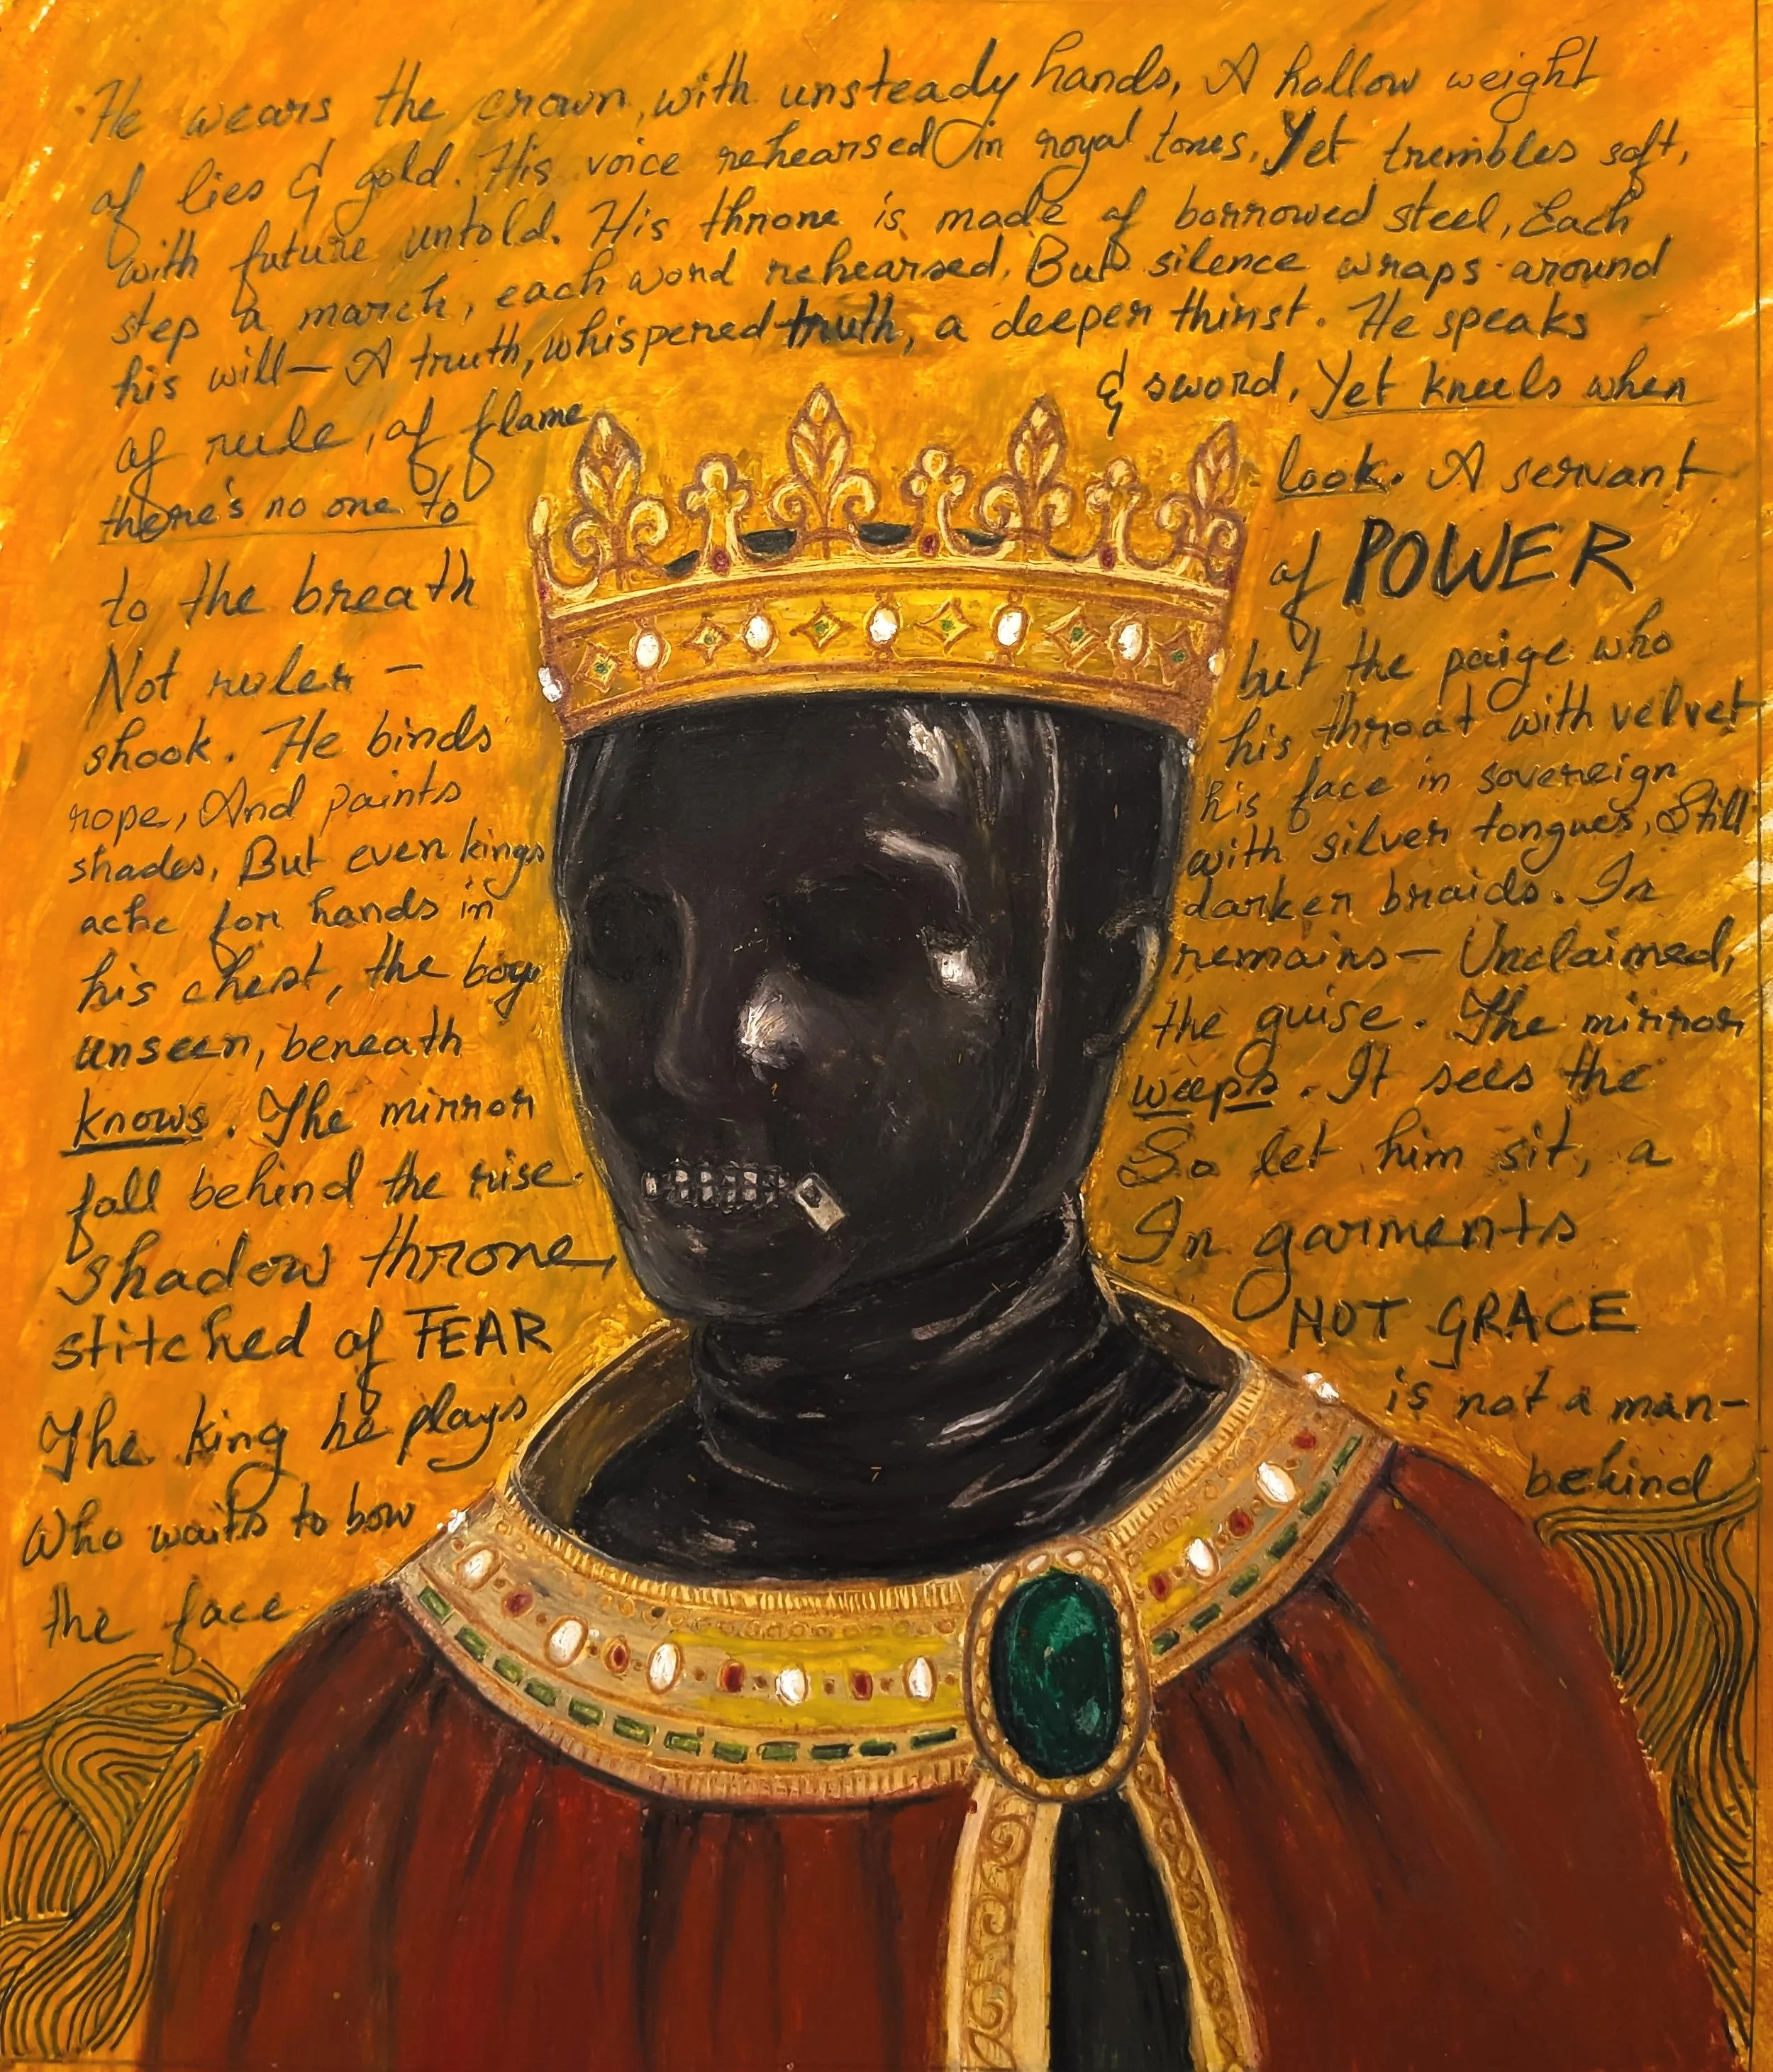 He wears the crown, with unsteady hands, A hollow weight
of lies & gold. His voice rehearsed in royal tones, Yet trembles soft,
with future untold. His throne is made of borrowed steel, Each
step a march, each word rehearsed, But silence wraps around
his will— A truth, whispered truth, a deeper thirst. He speaks
of rule, of flame & sword, Yet kneels when
there's no one to look. A servant
to the breath of POWER
Not ruler — but the paige who
shook. He binds his throat with velvet
rope, And paints his face in sovereign
shades, But even kings with silver tongues, Still
ache for hands in darker braids. In
his chest, the boy remains— Unclaimed,
unseen, beneath the guise. The mirror
knows. The mirror weeps. It sees the
fall behind the rise. So let him sit, a
shadow throne, In garments
stitched of FEAR NOT GRACE
The king he plays is not a man—
Who waits to bow behind
the face